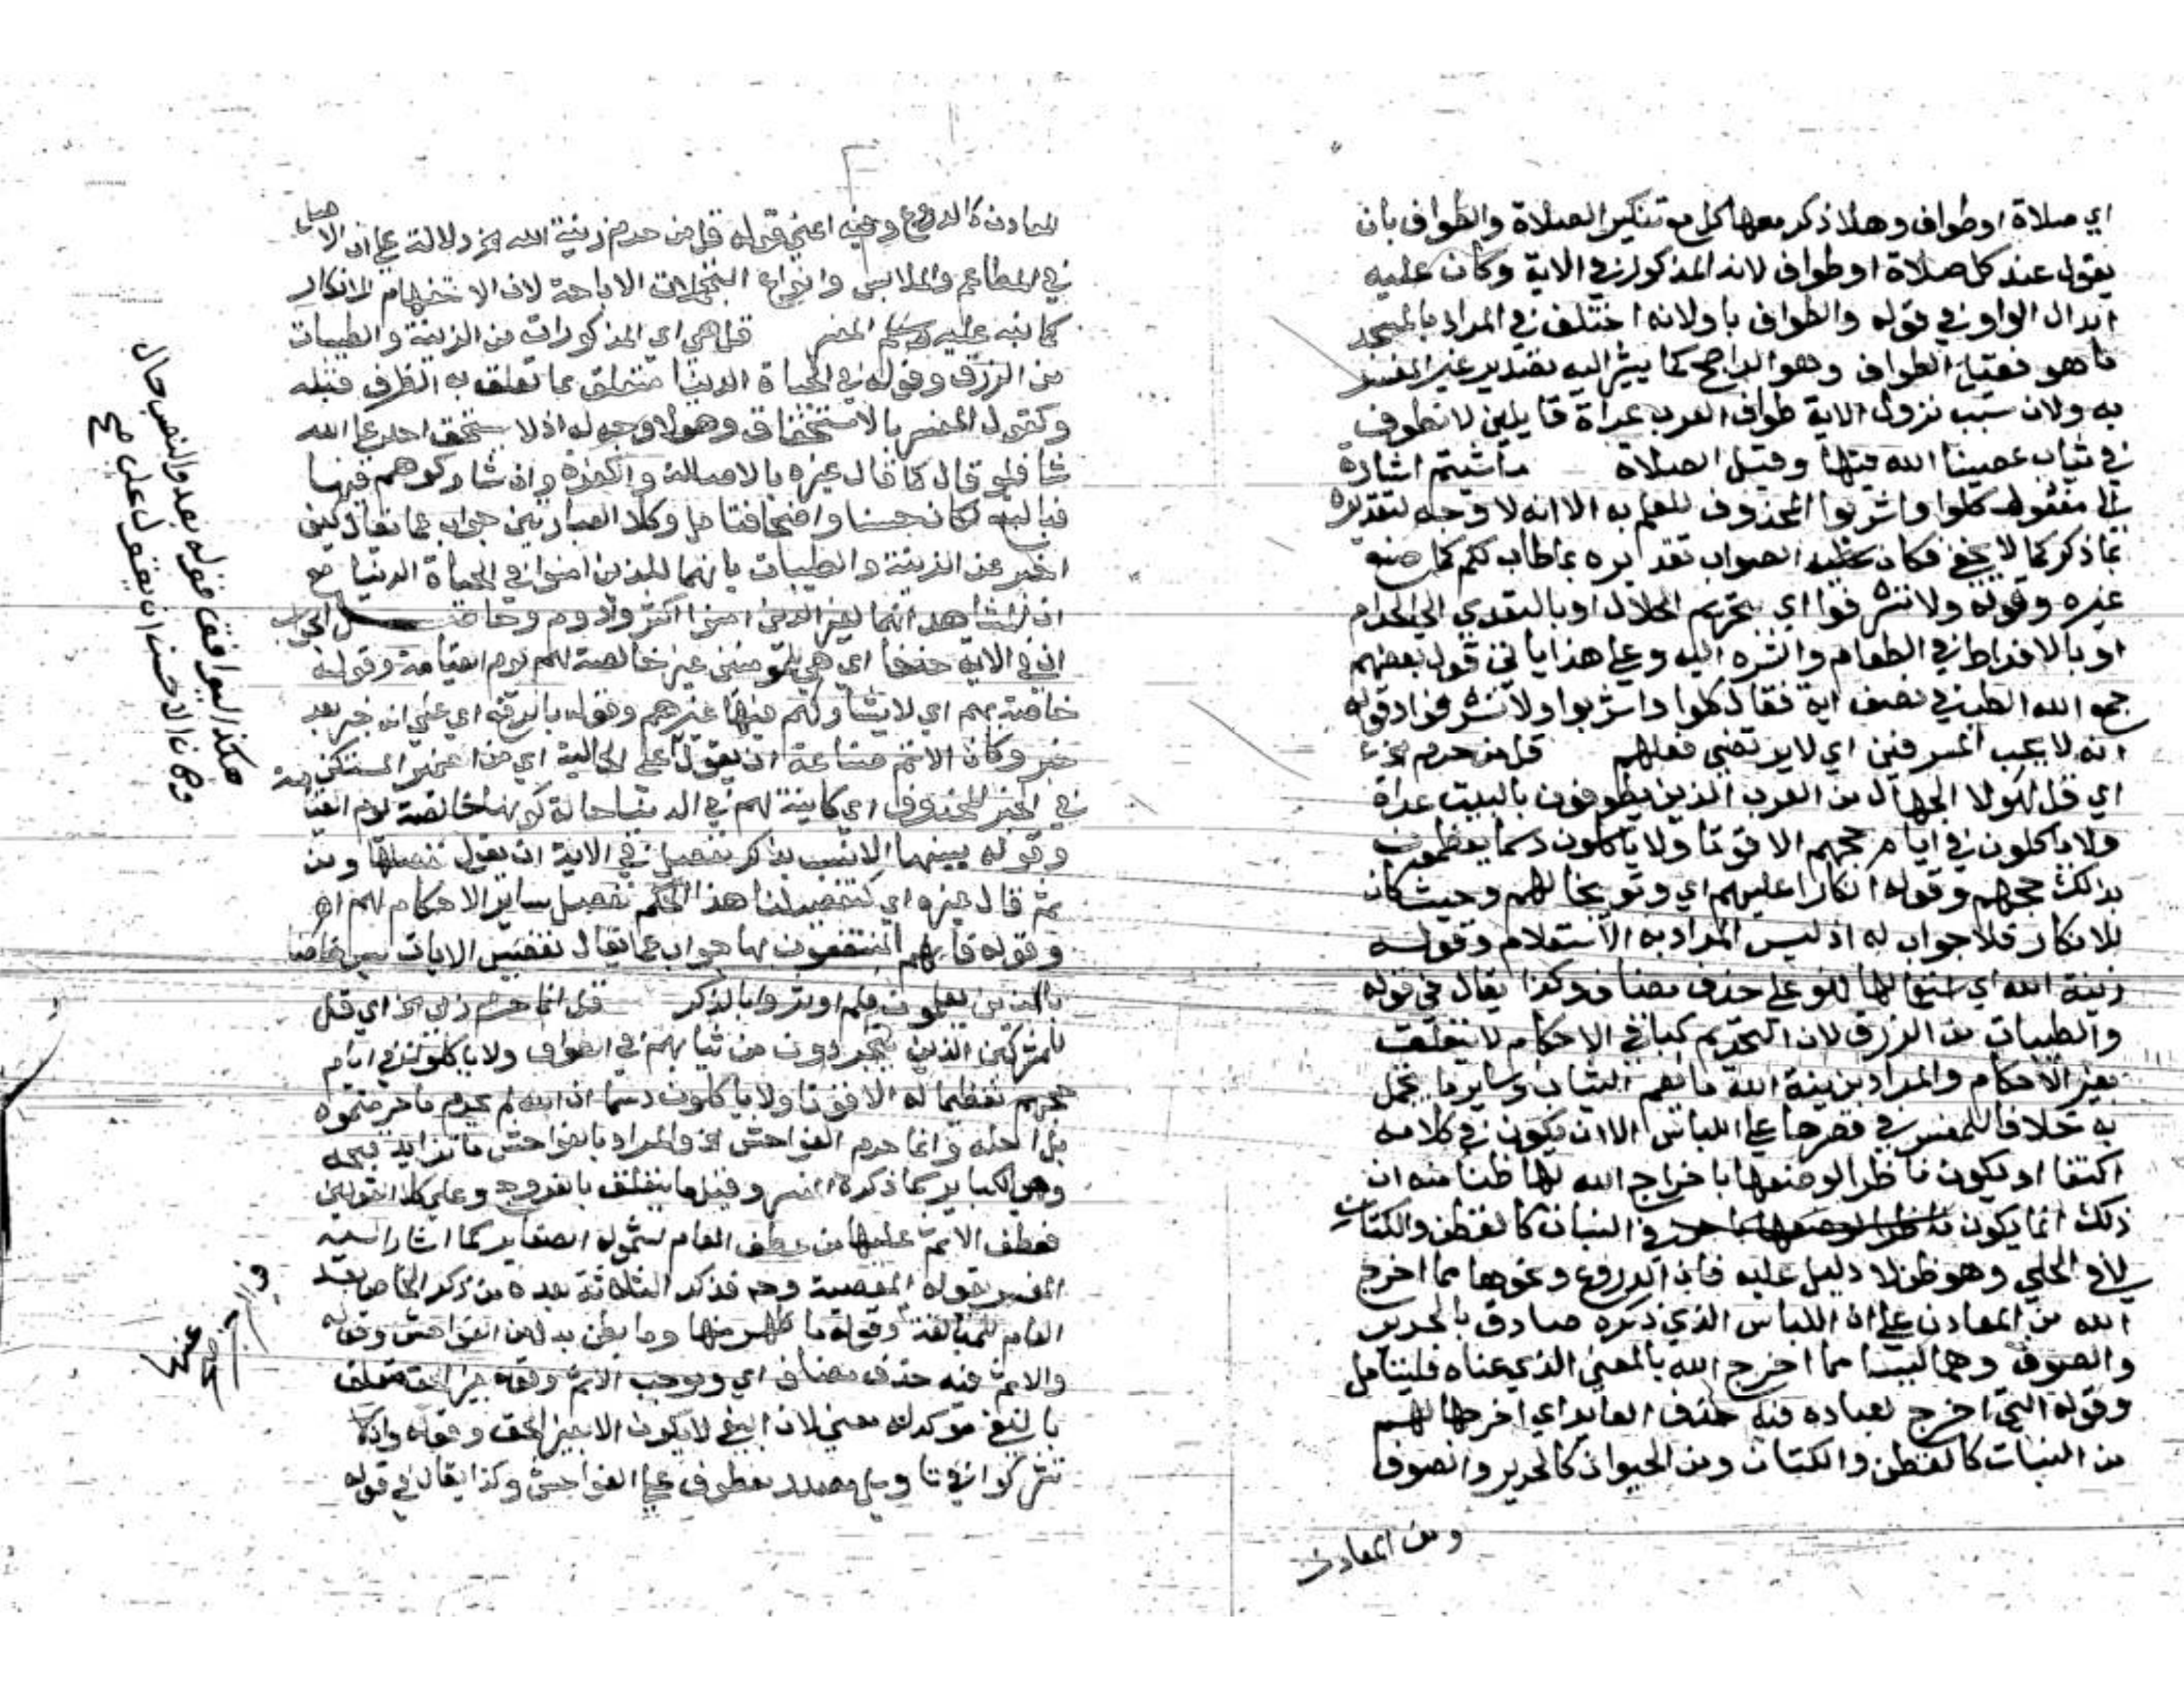 اي صلاة او طواف وهلا ذكر معها كل مع تنكير الصلاة والطواف بان
يقول عند كل صلاة او طواف لانه المذكور في الاية وكان عليه
ابدال الواو في قوله والطواف باو لانه اختلف في المراد بالمسجد
ما هو فقيل الطواف وهو الراجح كما يشير اليه تقدير غير المفسر
به ولان سبب نزول الاية طواف العرب عراة قايلين لا نطوف
في ثياب عصينا الله فيها وقيل الصلاة ما شيتم اشارة
الى مفعول كلوا واشربوا المحذوف للعلم به الا انه لا وجه لتقديره
بما ذكر كما لا يخفى فكان عليه الصواب تقديره بما طاب لكم كما صنع
غيره وقوله ولا تسرفوا اي بتحريم الحلال او بالتعدي الى الحرام
او بالافراط في الطعام والشره اليه وعلى هذا ياتي قول بعضهم
جمع الله الطب في نصف اية فقال كلوا واشربوا ولا تسرفوا وقوله
انه لا يحب المسرفين اي لا يرتضي فعلهم قل من حرم الخ
اي قل لهولا الجهال من العرب الذين يطوفون بالبيت عراة
ولا ياكلون في ايام حجهم الا قوتا ولا ياكلون دسما يعظمون
بذلك حجهم وقوله انكارا عليهم اي وتوبيخا لهم وحيث كان
للانكار فلا جواب له اذ ليس المراد به الاستعلام وقوله
زينة الله اي استعمالها فهو على حذف مضاف وكذا يقال في قوله
والطيبات من الرزق لان التحريم كباقي الاحكام لا يتعلق
بغير الاحكام والمراد بزينة الله ما يعم الثياب وساير ما يتجمل
به خلافا للمفسر في قصرها على اللباس الا ان يكون في كلامه
اكتفا او يكون ناظرا لوصفها باخراج الله لها ظنا منه ان
ذلك انما يكون في النبات كالقطن والكتان
لا في الحلي وهو ظن لا دليل عليه فان الدروع ونحوها مما اخرج
الله من المعادن على ان اللباس الذي ذكره صادق بالحرير
والصوف وهما ليسا مما اخرج الله بالمعنى الذي عناه فليتامل
وقوله التي اخرج لعباده فيه حذف العايد اي اخرجها لهم
من النبات كالقطن والكتان ومن الحيوان كالحرير والصوف
ومن المعادن
المعادن كالدروع وفيه اعني قوله قل من حرم زينة الله الخ دلالة على ان الاصل
في المطاعم والملابس وانواع التجملات الاباحة لان الاستفهام للانكار
كما نبه عليه المفسر قل هي اي المذكورات من الزينة والطيبات
من الرزق وقوله في الحياة الدنيا متعلق بما تعلق به الظرف قبله
وكقول المفسر بالاستحقاق وهو لا وجه له اذ لا يستحق احد على الله
شا فلو قال كما قال غيره بالاصالة والكفرة وان شاركوهم فيها
فبالتبع لكان حسنا واضحا فتامل وكلا العبارتين جواب عما يقال كيف
اخبر عن الزينة والطيبات بانهما للذين امنوا في الحياة الدنيا مع
ان المشاهد انهما لغير الذين امنوا اكثر وادوم وحاصل الجواب
ان في الاية حذفا اي هي للمومنين غير خالصة لهم يوم القيامة وقوله
خاصة بهم اي لا يشاركهم فيها غيرهم وقوله بالرفع اي على انه خبر بعد
خبر وكان الاتم صناعة ان يقول على الحالية اي من الضمير المستكن
في الخبر المحذوف اي كاينة لهم في الدنيا حالة كونها خالصة يوم القيامة
وقوله يبينها الانسب بذكر نفصل في الاية ان يقول نفصلها ومن
ثم قال غيره اي كتفصيلنا هذا الحكم نفصل ساير الاحكام لهم اه
وقوله فانهم المنتفعون بها جواب عما يقال تفصيل الايات ليس خاصا
بالذين يعلمون فلم اوثروا بالذكر قل انما حرم ربي الخ اي قل
للمشركين الذين يتجردون من ثيابهم في الطواف ولا ياكلون في ايام
حجهم تعظيما له الا قوتا ولا ياكلون دسما ان الله لم يحرم ما حرمتموه
بل احله وانما حرم الفواحش الخ والمراد بالفواحش ما تزايد قبحه
وهو الكباير كما ذكره المفسر وقيل ما يتعلق بالفروج وعلى كلا القولين
فعطف الاثم عليها من عطف العام لشموله الصغاير كما اشار اليه
المفسر بقوله المعصية وحينئذ فذكر الثلاثة بعده من ذكر الخاص بعد
العام للمبالغة وقوله ما ظهر منها وما بطن بدل من الفواحش وقوله
والاثم فيه حذف مضاف اي وموجب الاثم وقوله بغير الحق متعلق
بالبغي موكد له معنى لان البغي لا يكون الا بغير الحق وقوله وان
تشركوا في تاويل مصدر معطوف على الفواحش وكذا يقال في قوله
هكذا ليوافق قوله بعد والنصب حال
وكان الاحسن ان يقول على صح